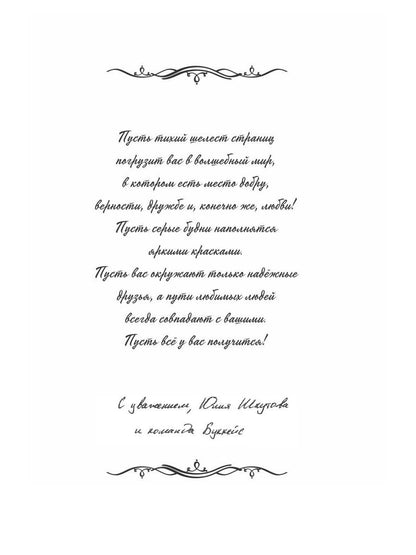 Пусть тихий шелест страниц
погрузит вас в волшебный мир,
в котором есть место добру,
верности, дружбе и, конечно же, любви!
Пусть серые будни наполнятся
яркими красками.
Пусть вас окружают только надёжные
друзья, а пути любимых людей
всегда совпадают с вашими.
Пусть всё у вас получится!
С уважением, Юлия Шкутова
и команда Буккейс